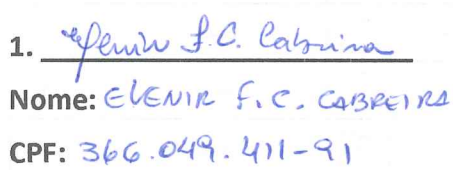 1. Elenir F.C. Cabreira
Nome: ELENIR F.C. CABREIRA
CPF: 366.049.411-91